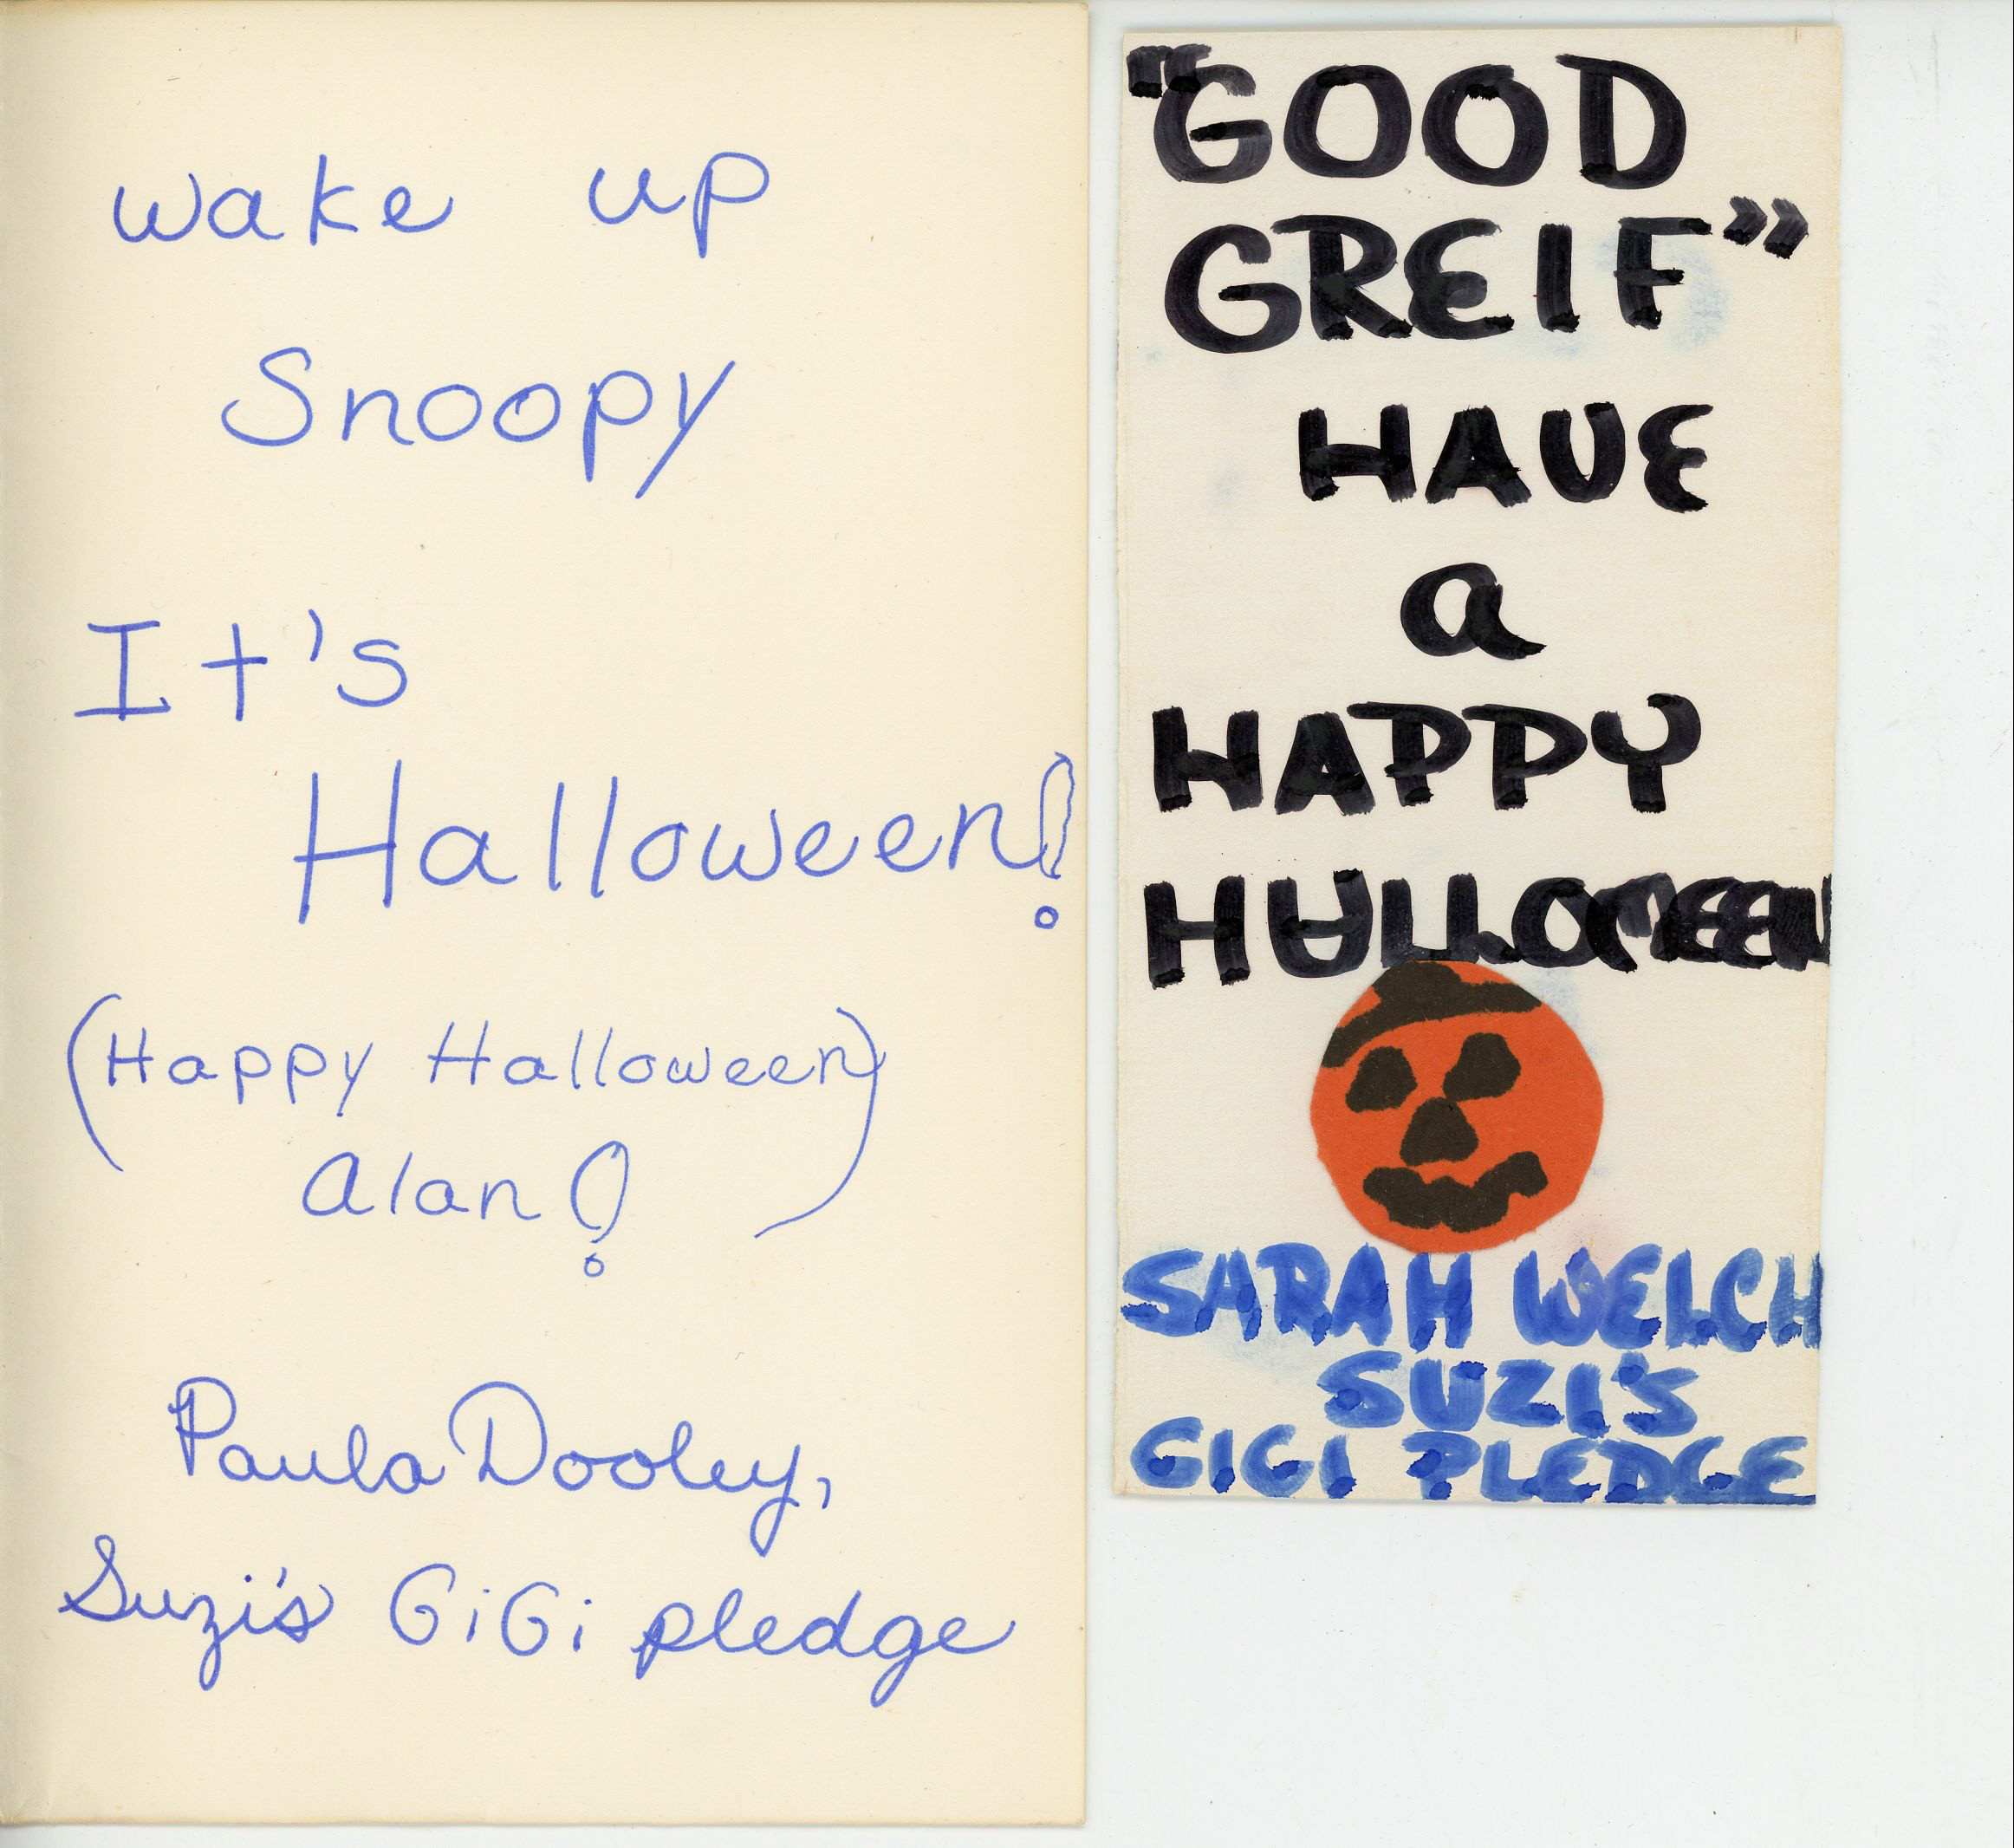 wake up
Snoopy
It's
Halloween!
(Happy Halloween)
Alan!
Paula Dooley,
Suzi's GiGi pledge
"GOOD
GREIF"
HAVE
a
HAPPY
HULLOWEEN
SARAH WELCH
SUZI'S
GIGI PLEDGE